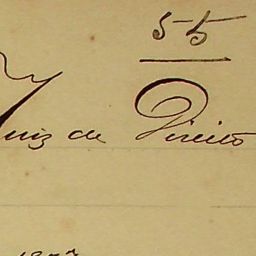 55
Juiz de Direito